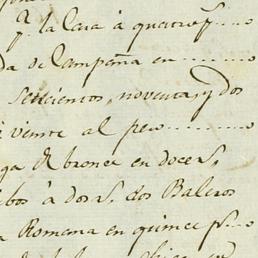 y. la Caxa à quatro p.s....o
da de Campaña en ........o
Setecientos, noventa, y dos
i veinte al peso .........o
ga de bronce en doce p.s
ibos à dos r.s dos Baleros
a Romana en quince p.s...o